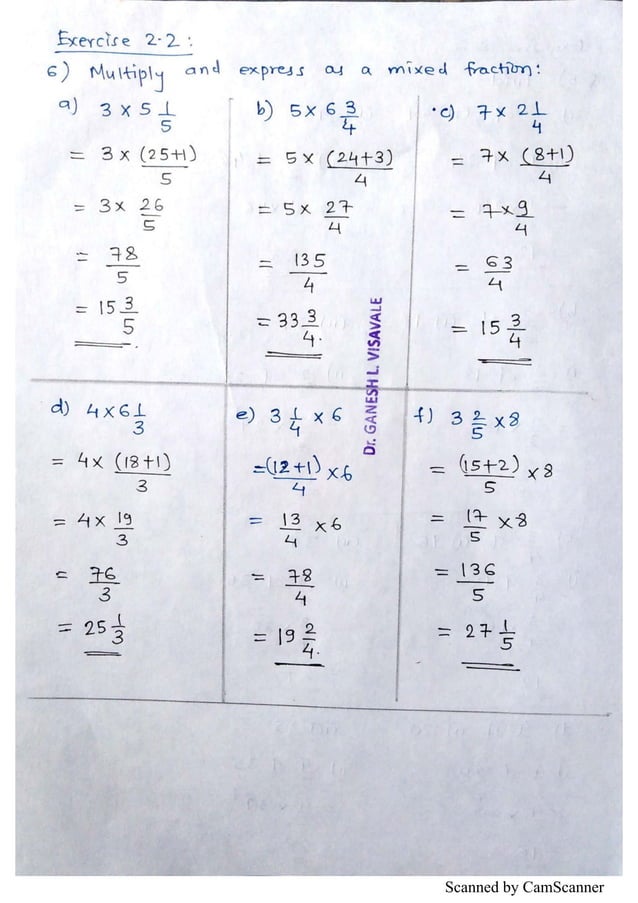 Exercise 2.2 :
6) Multiply and express as a mixed fraction:
a) 3 × 5 1/5
= 3 × (25+1)/5
= 3 × 26/5
= 78/5
= 15 3/5.
b) 5 × 6 3/4
= 5 × (24+3)/4
= 5 × 27/4
= 135/4
= 33 3/4.
c) 7 × 2 1/4
= 7 × (8+1)/4
= 7 × 9/4
= 63/4
= 15 3/4
Dr. GANESH L. VISAVALE
d) 4 × 6 1/3
= 4 × (18+1)/3
= 4 × 19/3
= 76/3
= 25 1/3
e) 3 1/4 × 6
= (12+1)/4 × 6
= 13/4 × 6
= 78/4
= 19 2/4.
f) 3 2/5 × 8
= (15+2)/5 × 8
= 17/5 × 8
= 136/5
= 27 1/5
Scanned by CamScanner